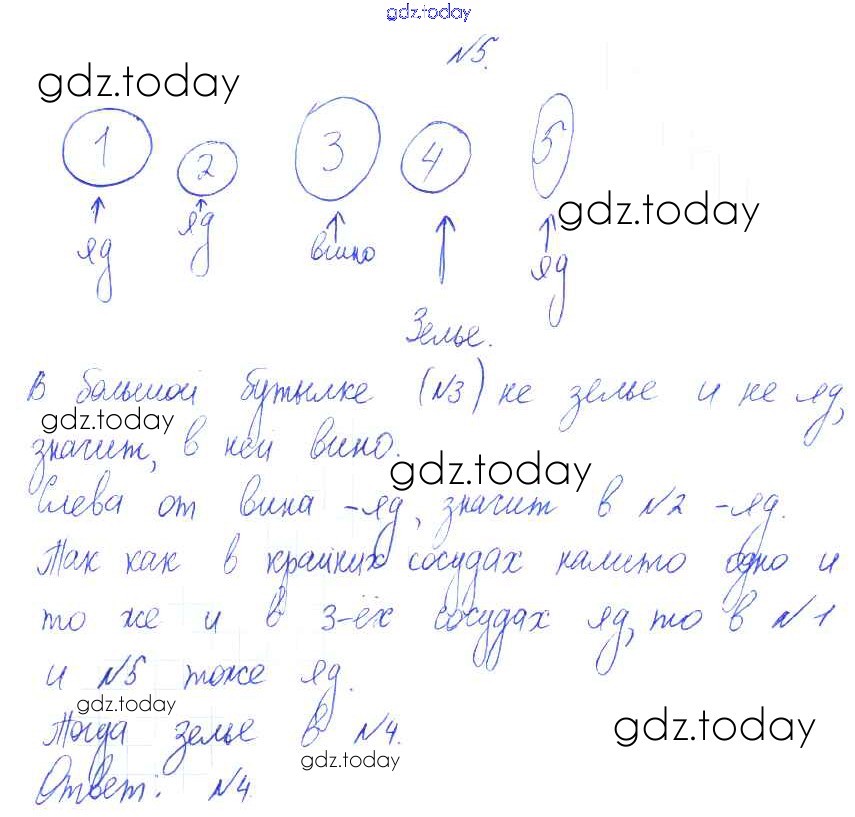 gdz.today
№5.
gdz.today
1 2 3 4 5
gdz.today
яд яд вино яд
Зелье.
В большой бутылке (№3) не зелье и не яд,
gdz.today
значит, в ней вино.
gdz.today
Слева от вина - яд, значит в №2 - яд.
Так как в крайних сосудах налито одно и
то же и в 3-ёх сосудах яд, то в №1
и №5 тоже яд.
gdz.today
gdz.today
Тогда зелье в №4.
gdz.today
Ответ: №4